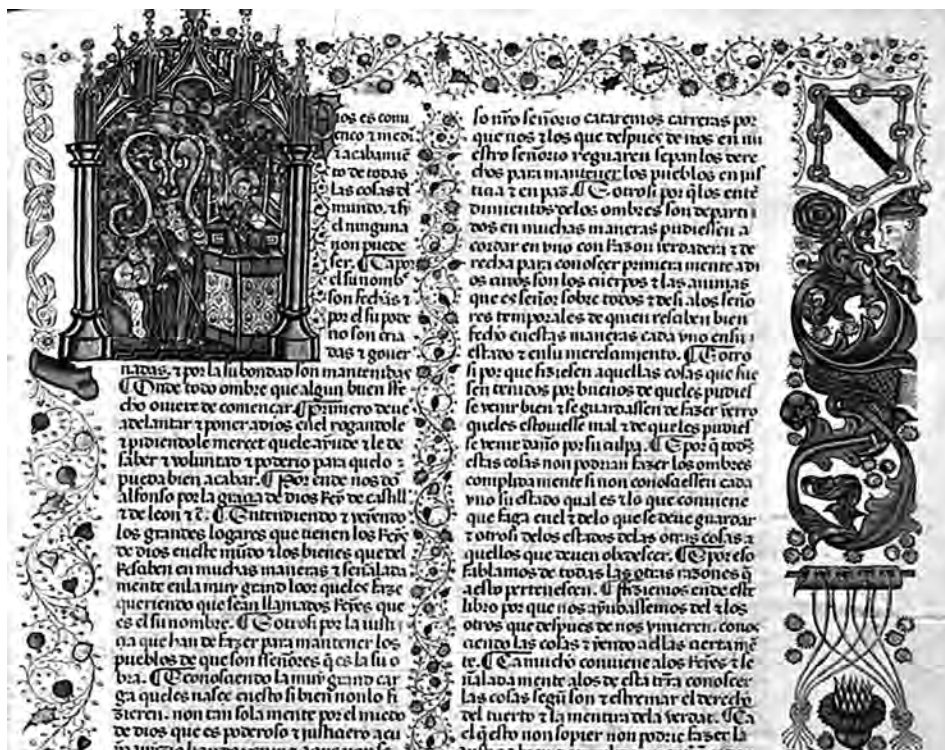 Dios es comi
enço τ medi
o τ acabamiẽ
to de todas
las cosas del
mundo. τ si
el ninguna
non puede
ser. ¶ Ca por
el su nomb
son fechas τ
por el su pode
rio son cria
das τ gouer
nadas. τ por la su bondad son mantenidas
¶ Onde todo ombre que algun buen fe
cho ouiere de començar. ¶ primero deue
adelantar τ poner a dios enel rogandole
τ pidiendole mercet quele ayude τ le de
saber τ voluntad τ poderio para quelo
pueda bien acabar. ¶ Por ende nos dõ
alfonso por la gracia de dios Rey de castill
τ de leon τ c̃. ¶ Entendiendo τ veyendo
los grandes logares que tienen los Reyes
de dios eneste mũdo τ los bienes que del
Resciben en muchas maneras τ señalada
mente enla muy grand loor queles faze
queriendo que sean llamados Reyes que
es el su nombre. ¶ E otrosi por la iusti
çia que han de fazer para mantener los
pueblos de que son señores q̃ es la su o
bra. ¶ E conosciendo la muy grand car
ga queles nasce enesto si bien nonlo fi
zieren. non tan sola mente por el miedo
de dios que es poderoso τ justiciero a cu
so nr̃o señorio cataremos carreras por
que nos τ los que despues de nos en nu
estro señorio regnaren sepan los dere
chos para mantener los pueblos en jus
ticia τ en paz. ¶ E otrosi por q̃ los entẽ
dimientos delos ombres son departi
dos en muchas maneras pudiessen a
cordar en vno con razon verdadera τ de
recha para conoscer primera mente a di
os cuios son los cuerpos τ las animas
que es señor sobre todos τ desi alos seño
res temporales de quien resciben bien
fecho enestas maneras cada vno ensu
estado τ ensu merescimiento. ¶ E otro
si por que fiziesen aquellas cosas que fue
sen tenidos por buenos de queles pudies
se venir bien τ se guardassen de fazer yerro
queles estouiesse mal τ de que les pudies
se venir daño por su culpa. ¶ E por q̃ todas
estas cosas non podrian fazer los ombres
complida mente si non conosciessen cada
vno su estado qual es τ lo que conuiene
que faga enel τ delo que se deue guardar
τ otrosi delos estados delas otras cosas a
quellos que deuen obedescer. ¶ E por eso
fablamos de todas las otras razones q̃
a esto pertenescen. ¶ fiziemos ende este
libro por que nos ayudassemos del τ los
otros que despues de nos vinieren. conos
ciendo las cosas τ yendo a ellas ciertamẽ
te. ¶ Ca mucho conuiene alos Reyes τ se
ñalada mente alos de esta tr̃a conoscer
las cosas segũ son τ estremar el derecho
del tuerto τ la mentira dela verdat. ¶ Ca
el q̃ esto non sopier non podrie fazer la